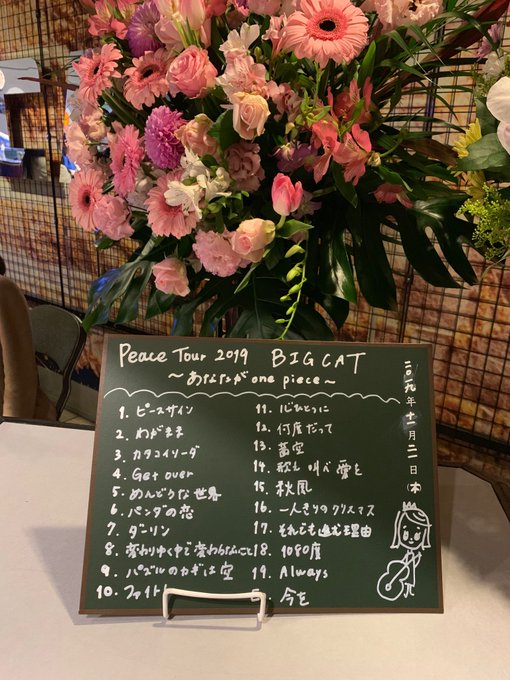 Peace Tour 2019 BIG CAT
～あなたが one piece～
1. ピースサイン
2. わがまま
3. カタコイリーダ
4. Get over
5. めんどうな世界
6. パンダの恋
7. ダーリン
8. 変わりゆく中で変わらないこと
9. パズルのカギは空
10. ファイト
11. 心ひとつに
12. 何度だって
13. 茜空
14. 歌え 叫べ 愛を
15. 秋風
16. 一人きりのクリスマス
17. それでも進む理由
18. 1080度
19. Always
今を
二〇一九年十一月二一日(木)